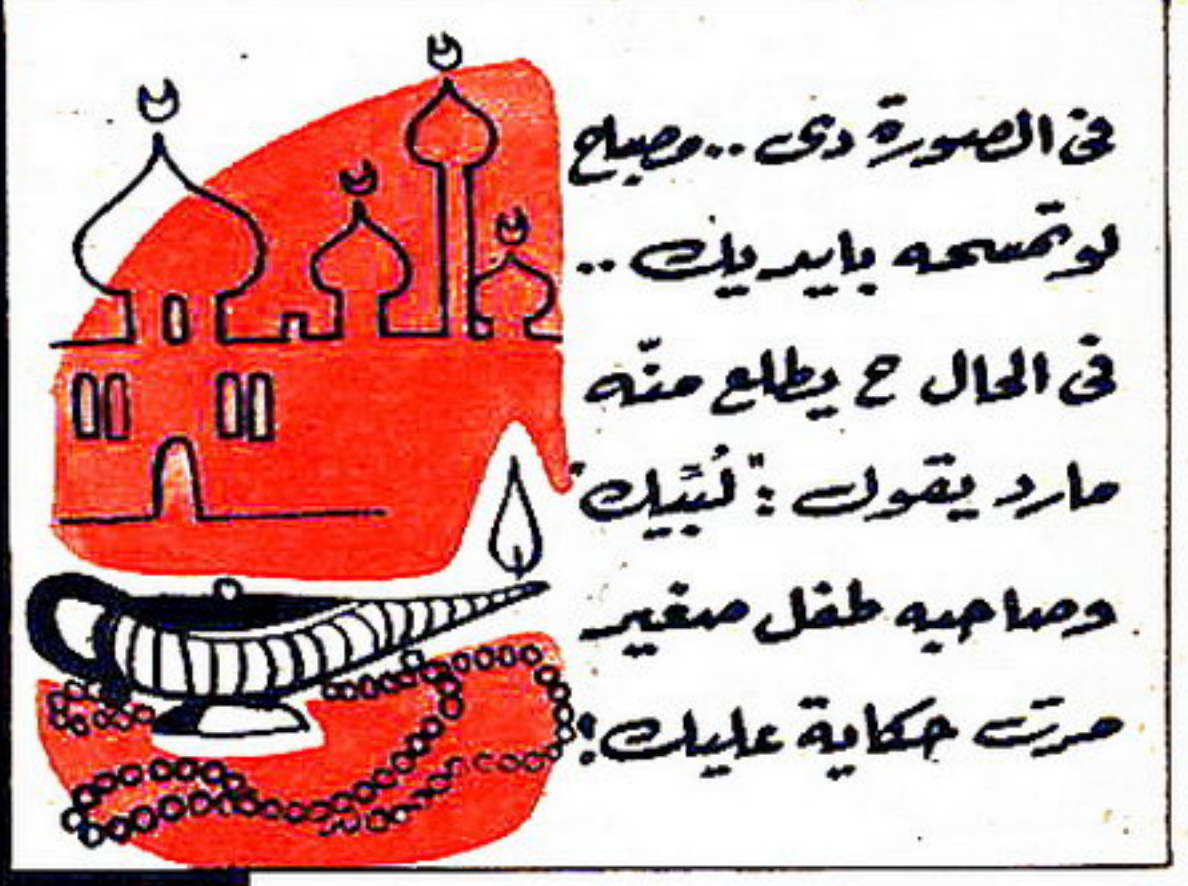 فى الصورة دى .. مصباح
لو تمسحه بايديك ..
فى الحال ح يطلع منّه
مارد يقول : "لُبَّيك"
وصاحبه طفل صغير
مرت حكاية عليك !